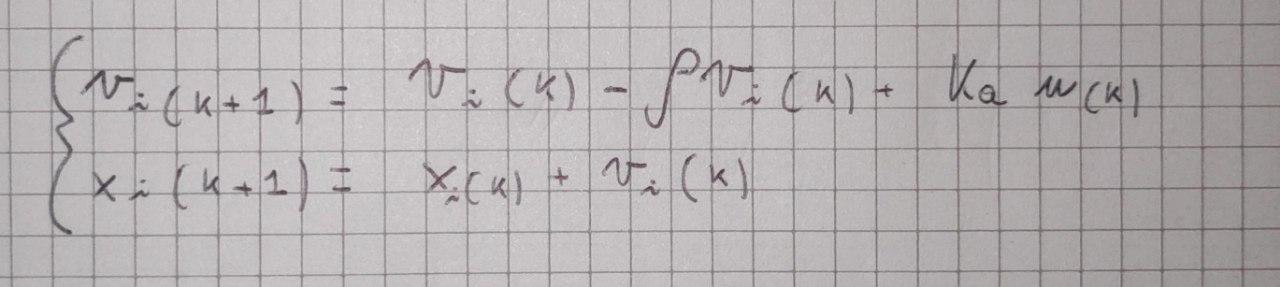 v_i(k+1) = v_i(k) - ρv_i(k) + k_a u(k)
x_i(k+1) = x_i(k) + v_i(k)